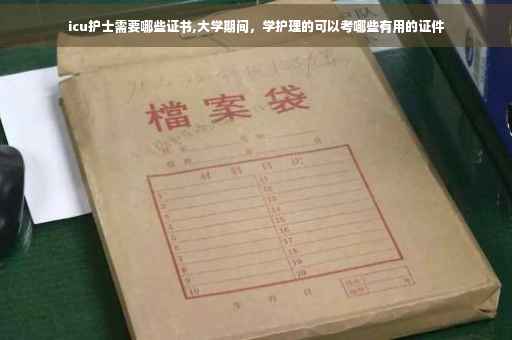 icu护士需要哪些证书,大学期间，学护理的可以考哪些有用的证件
檔案袋
材料目次
1 11
2 12
3 13
4 14
5 15
6 16
7 17
8 18
9 19
10 20
年 月 日